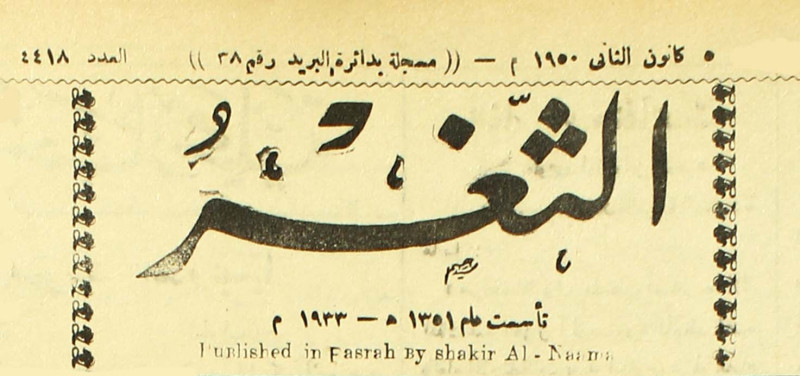 ٥ كانون الثاني ١٩٥٠ م — (( مسجلة بدائرة البريد رقم ٣٨ )) العدد ٤٤١٨
الثَّغْرُ
تأسست عام ١٣٥١ ه — ١٩٣٣ م
Published in Basrah By shakir Al - Naama